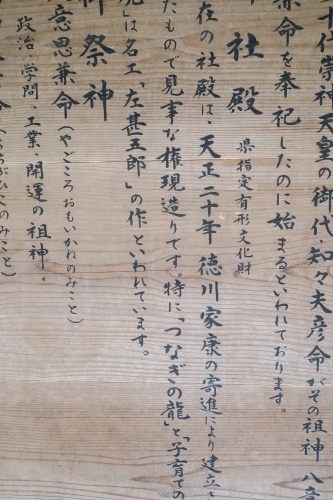 十代崇神天皇の御代・知々夫彦命がその祖神 八意
命を奉祀したのに始まるといわれております。
社殿 県指定有形文化財
在の社殿は、天正二十年 徳川家康の寄進により建立さ
たもので見事な権現造りです。特に「つなぎの龍」と「子育ての
」は名工「左甚五郎」の作といわれています。
祭神
意思兼命(やごころおもいかねのみこと)
政治・学問・工業・開運の祖神。
ちちぶひこのみこと)